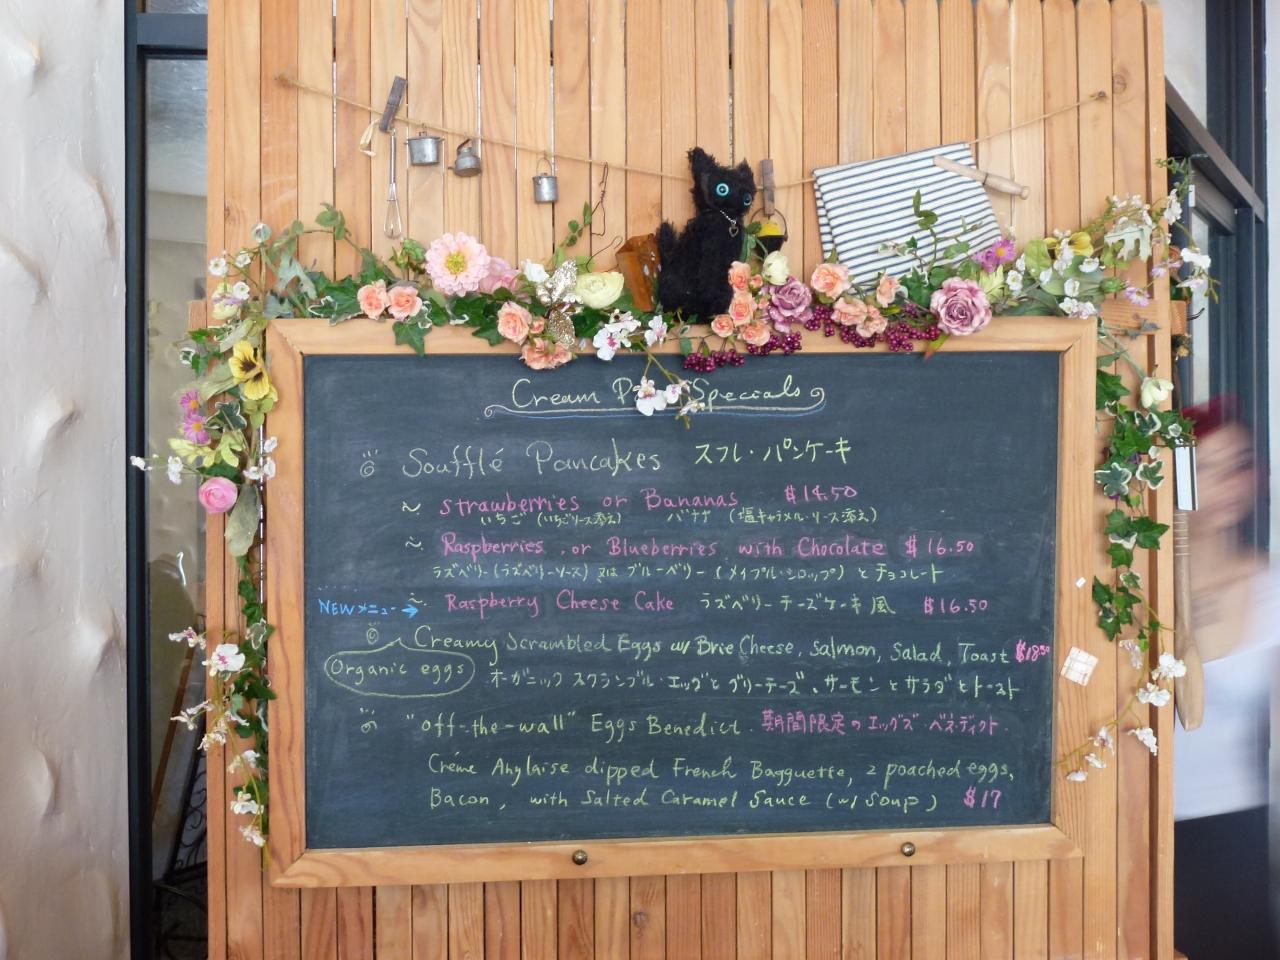 Cream P Specials
Soufflé Pancakes スフレ・パンケーキ
~ Strawberries or Bananas $14.50
いちご (いちごソース添え) バナナ (塩キャラメル・ソース添え)
~ Raspberries or Blueberries with Chocolate $16.50
ラズベリー (ラズベリーソース) 又は ブルーベリー (メイプル・シロップ) と チョコレート
NEWメニュー → ~ Raspberry Cheese Cake ラズベリーチーズケーキ風 $16.50
Creamy Scrambled Eggs w/ Brie Cheese, Salmon, Salad, Toast $18.50
Organic eggs
オーガニック スクランブル・エッグと ブリーチーズ、サーモンとサラダとトースト
"off-the-wall" Eggs Benedict. 期間限定のエッグズ・ベネディクト.
Créme Anglaise dipped French Bagguette, 2 poached eggs,
Bacon, with Salted Caramel Sauce (w/ Soup) $17